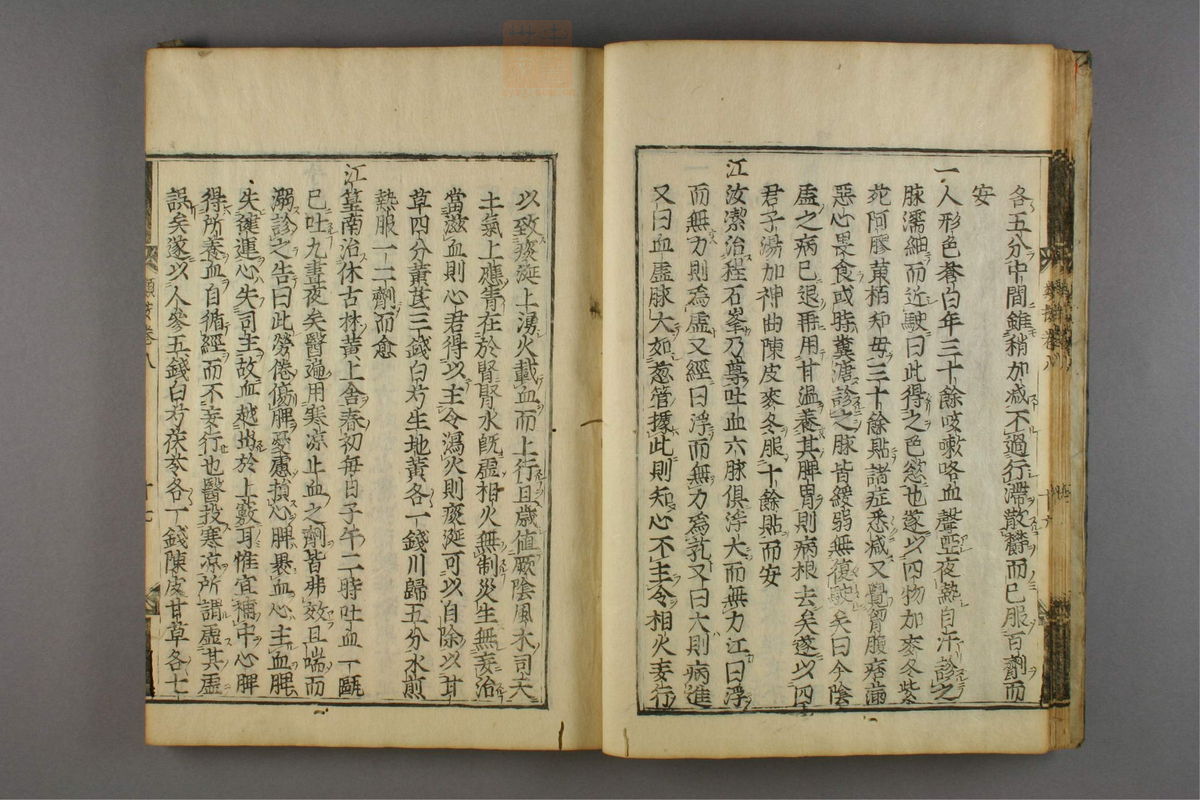 各五分中間雖稍加減不過行滯散欝而已服百劑而
安
一人形色蒼白年三十餘咳嗽咯血聲啞夜熱自汗診之
脉濡細而近駛曰此得之色慾也遂以四物加麥冬紫
菀阿膠黄栢知毋三十餘貼諸症悉减又覺胷腹痞滿
惡心畏食或時糞溏診之脉皆緩弱無復駛矣曰今陰
虗之病已退再用甘温養其脾胃則病根去矣遂以四
君子湯加神曲陳皮麥冬服十餘貼而安
江汝潔治程石峯乃尊吐血六脉俱浮大而無力江曰浮
而無力則爲虗又經曰浮而無力爲芤又曰大則病進
又曰血虗脉大如葱管㨿此則知心不主令相火妄行
以致痰涎上湧火載血而上行且歲值厥陰風木司天
土氣上應眚在於腎腎水既虗相火無制災生無妄治
當滋血則心君得以主令瀉火則痰涎可以自除以甘
草四分黄芪三錢白芍生地黄各一錢川歸五分水煎
熱服一二劑而愈
江篁南治休古林黄上舍春初毎日子午二時吐血一甌
已吐九晝夜矣醫遍用寒凉止血之劑皆弗效且喘而
溺診之告曰此勞倦傷脾憂慮損心脾裹血心主血脾
失健運心失司主故血越出於上竅耳惟宜補中心脾
得所養血自循經而不妄行也醫投寒凉所謂虗其虗
誤矣遂以人參五錢白芍茯苓各一錢陳皮甘草各七